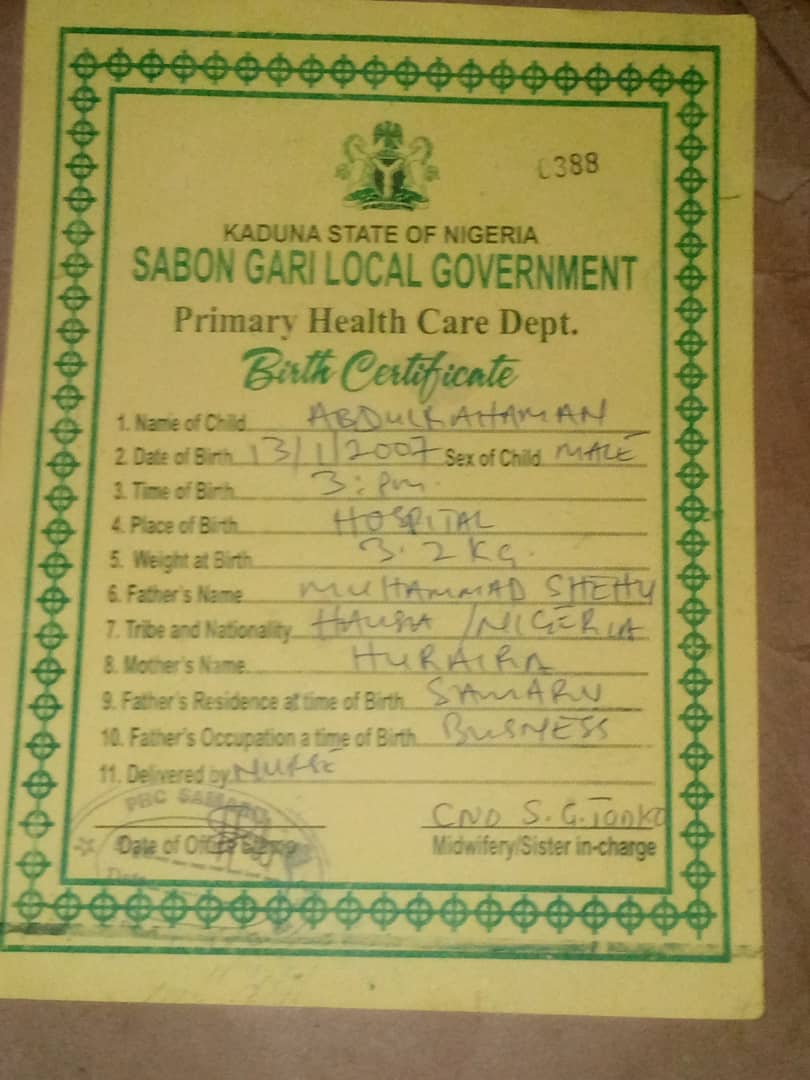 0388
KADUNA STATE OF NIGERIA
SABON GARI LOCAL GOVERNMENT
Primary Health Care Dept.
Birth Certificate
1. Name of Child ABDULRAHAMAN
2. Date of Birth 13/1/2007 Sex of Child MALE
3. Time of Birth 3:pm.
4. Place of Birth HOSPITAL
5. Weight at Birth 3.2KG.
6. Father's Name MUHAMMAD SHEHU
7. Tribe and Nationality HAUSA /NIGERIA
8. Mother's Name HURAIRA
9. Father's Residence at time of Birth SAMARU
10. Father's Occupation a time of Birth BUSNESS
11. Delivered by NURSE
PHC SAMARU
CNO S. G. TONKO
Date of Office Stamp Midwifery/Sister in-charge
Date